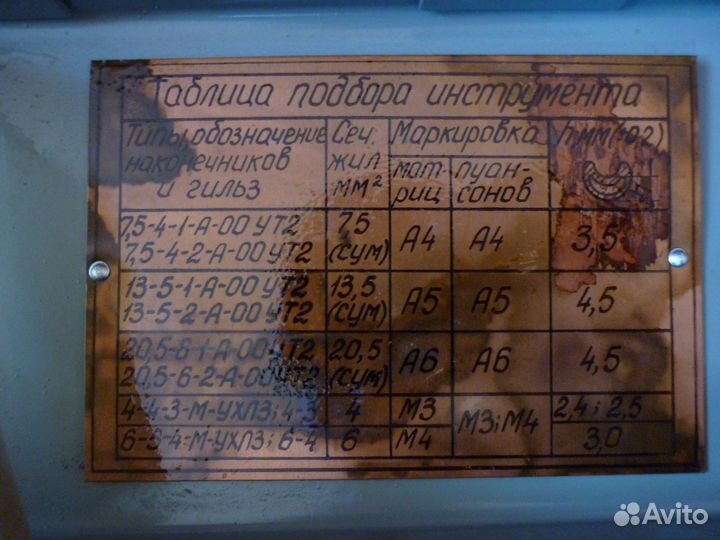 Таблица подбора инструмента
Типы, обозначение наконечников и гильз
Сеч. жил мм²
Маркировка
мат-риц
пуан-сонов
h мм(±0.2)
7,5-4-1-А-00 УТ2
7,5-4-2-А-00 УТ2
7,5 (сум)
А4
А4
3,5
13-5-1-А-00 УТ2
13-5-2-А-00 УТ2
13,5 (сум)
А5
А5
4,5
20,5-6-1-А-00 УТ2
20,5-6-2-А-00 УТ2
20,5 (сум)
А6
А6
4,5
4-4-3-М-УХЛ3; 4-3
4
М3
М3; М4
2,4; 2,5
6-5-4-М-УХЛ3; 6-4
6
М4
3,0
Avito